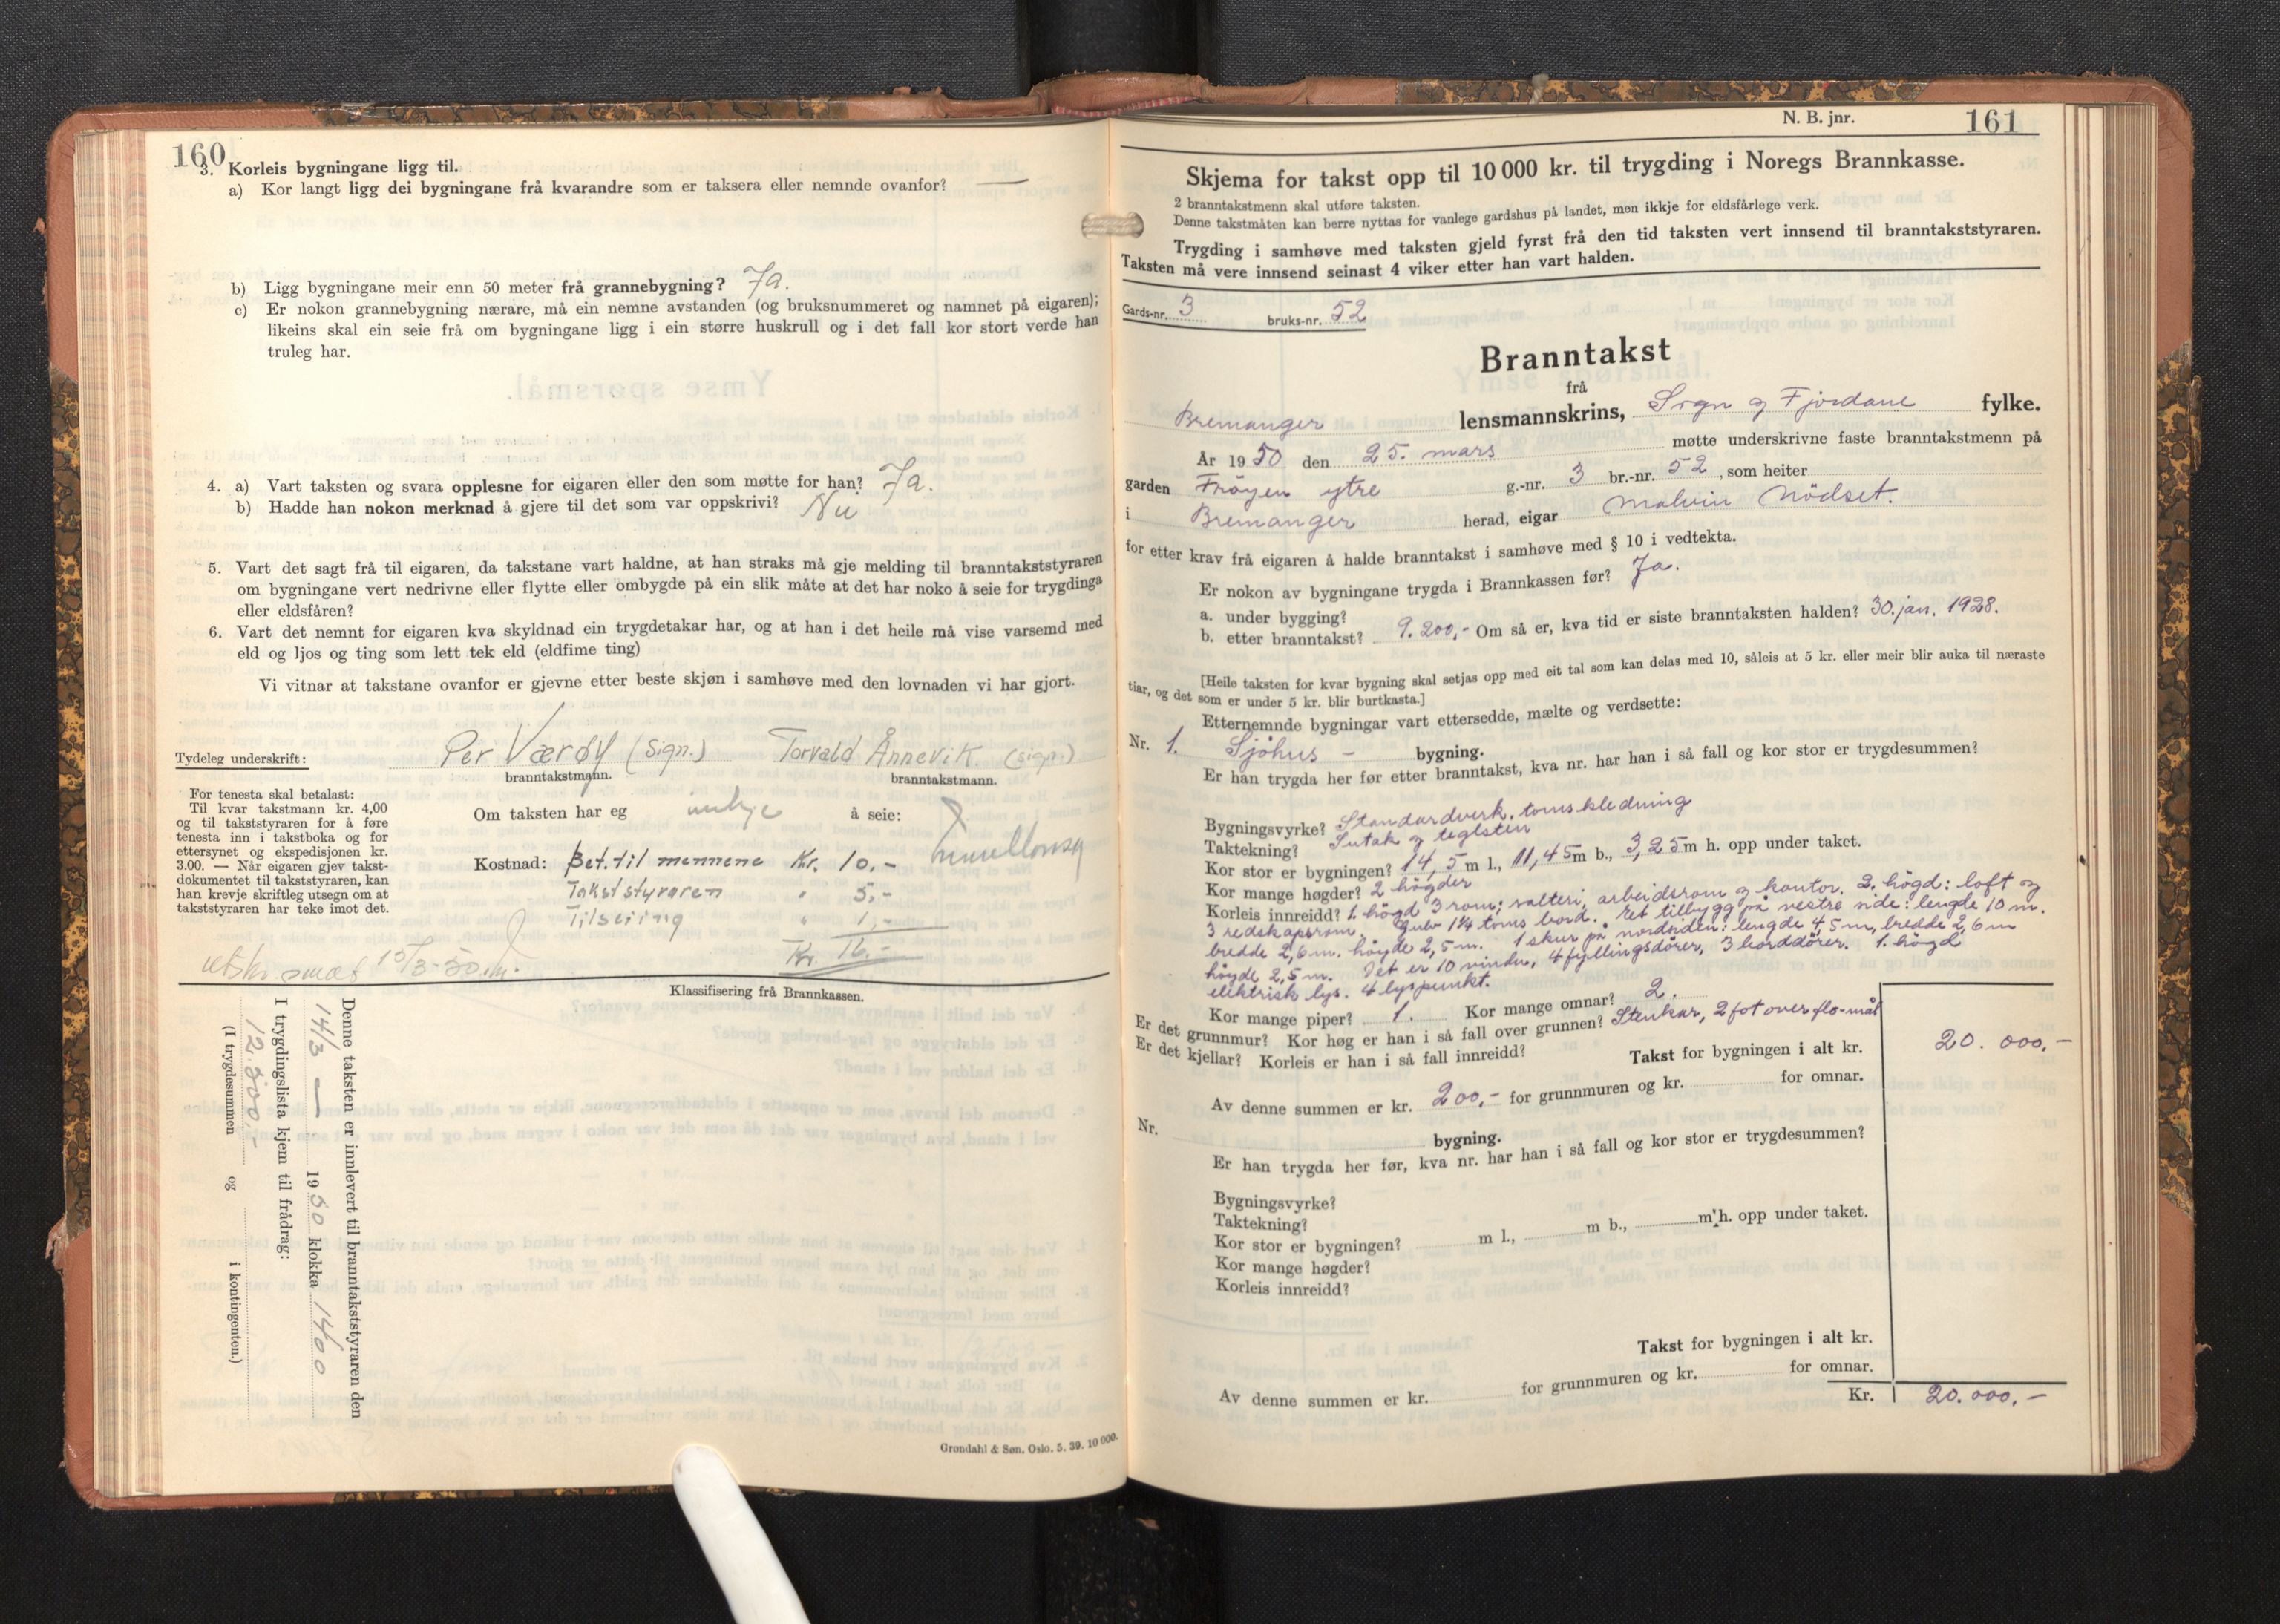 160
3. Korleis bygningane ligg til.
a) Kor langt ligg dei bygningane frå kvarandre som er taksera eller nemnde ovanfor? —
b) Ligg bygningane meir enn 50 meter frå grannebygning? Ja.
c) Er nokon grannebygning nærare, må ein nemne avstanden (og bruksnummeret og namnet på eigaren);
likeins skal ein seie frå om bygningane ligg i ein større huskrull og i det fall kor stort verde han
truleg har.
4. a) Vart taksten og svara opplesne for eigaren eller den som møtte for han? Ja.
b) Hadde han nokon merknad å gjere til det som var oppskrivi? Nei
5. Vart det sagt frå til eigaren, da takstane vart haldne, at han straks må gje melding til branntakststyraren
om bygningane vert nedrivne eller flytte eller ombygde på ein slik måte at det har noko å seie for trygdinga
eller eldsfåren?
6. Vart det nemnt for eigaren kva skyldnad ein trygdetakar har, og at han i det heile må vise varsemd med
eld og ljos og ting som lett tek eld (eldfime ting)
Vi vitnar at takstane ovanfor er gjevne etter beste skjøn i samhøve med den lovnaden vi har gjort.
Tydeleg underskrift: Per Værøy (sign.) Torvald Ånnevik. (sign)
branntakstmann. branntakstmann.
For tenesta skal betalast:
Til kvar takstmann kr. 4,00
og til takststyraren for å føre
tenesta inn i takstboka og for
ettersynet og ekspedisjonen kr.
3.00. — Når eigaren gjev takst-
dokumentet til takststyraren, kan
han krevje skriftleg utsegn om at
takststyraren har teke imot det.
Om taksten har eg inkje å seie:
Kostnad: Bet. til mennene Kr. 10,-
Takststyraren " 5,-
Tilseiing " 1,-
Kr. 16.-
15/3-50
Klassifisering frå Brannkassen.
Denne taksten er innlevert til branntakststyraren den
14/3 — 1950 klokka 1400
I trygdingslista kjem til frådrag:
12.500.-
(I trygdesummen og i kontingenten.)
Grøndahl & Søn, Oslo. 5. 39. 10 000.
N. B. jnr. 161
Skjema for takst opp til 10 000 kr. til trygding i Noregs Brannkasse.
2 branntakstmenn skal utføre taksten.
Denne takstmåten kan berre nyttas for vanlege gardshus på landet, men ikkje for eldsfårlege verk.
Trygding i samhøve med taksten gjeld fyrst frå den tid taksten vert innsend til branntakststyraren.
Taksten må vere innsend seinast 4 viker etter han vart halden.
Gards-nr. 3 bruks-nr. 52
Branntakst
frå
Bremanger lensmannskrins, Sogn og Fjordane fylke.
År 1950 den 25. mars møtte underskrivne faste branntakstmenn på
garden Frøyen ytre g.-nr. 3 br.-nr. 52, som heiter
i Bremanger herad, eigar Malvin Nödset.
for etter krav frå eigaren å halde branntakst i samhøve med § 10 i vedtekta.
Er nokon av bygningane trygda i Brannkassen før? Ja.
a. under bygging?
b. etter branntakst? 9.200,- Om så er, kva tid er siste branntaksten halden? 30. jan. 1928.
[Heile taksten for kvar bygning skal setjas opp med eit tal som kan delas med 10, såleis at 5 kr. eller meir blir auka til næraste
tiar, og det som er under 5 kr. blir burtkasta.]
Etternemnde bygningar vart ettersedde, mælte og verdsette:
Nr. 1. Sjöhus - bygning.
Er han trygda her før etter branntakst, kva nr. har han i så fall og kor stor er trygdesummen?
Bygningsvyrke? Standardverk, toms kledning
Taktekning? Sutak og teglsten
Kor stor er bygningen? 14,5 m l., 11,45 m b., 3,25 m h. opp under taket.
Kor mange høgder? 2 högder
Korleis innreidd? 1. högd 3 rom; salteri, arbeidsrom og kontor. 2. högd: loft og
3 redskapsrom. Gulv 1¼ toms bord. Eit tilbygg på vestre side: lengde 10 m.
bredde 2,6 m. höyde 2,5 m. 1 skur på nordsiden: lengde 4,5 m, bredde 2,6 m
höyde 2,5 m. Det er 10 vindu, 4 fyllingsdörer, 3 borddörer. 1. högd
elektrisk lys. 4 lyspunkt.
Kor mange piper? 1. Kor mange omnar? 2.
Er det grunnmur? Kor høg er han i så fall over grunnen? Stenkar, 2 fot over flo-mål
Er det kjellar? Korleis er han i så fall innreidd? Takst for bygningen i alt kr. 20.000,-
Av denne summen er kr. 200,- for grunnmuren og kr. for omnar.
Nr. bygning.
Er han trygda her før, kva nr. har han i så fall og kor stor er trygdesummen?
Bygningsvyrke?
Taktekning?
Kor stor er bygningen? m l., m b., m h. opp under taket.
Kor mange høgder?
Korleis innreidd?
Takst for bygningen i alt kr.
Av denne summen er kr. for grunnmuren og kr. for omnar.
Kr. 20.000,-